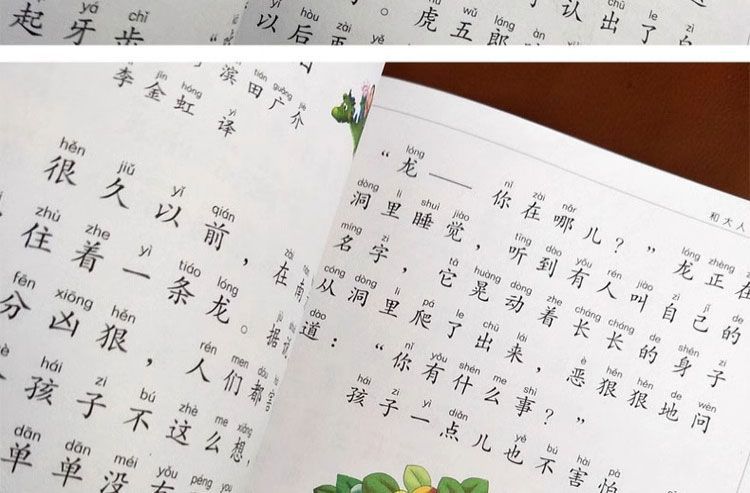 yá chǐ
起牙齿
hòu
以后
chū le
认出了
虎五郎
tián guǎng jiè
滨田广介
jīn hóng yì
李金虹 译
hěn jiǔ yǐ qián
很久以前，在
zhù zhe yì tiáo lóng
住着一条龙。据说
fēn xiōng hěn rén men dōu
分凶狠，人们都害
hái zi bú zhè me xiǎng
孩子不这么想，
dān dān méi yǒu péng
单单没有
和大人
lóng nǐ zài nǎr lóng zhèng zài
“龙—— 你在哪儿？”龙正在
dòng li shuì jiào tīng dào yǒu rén jiào zì jǐ de
洞里睡觉，听到有人叫自己的
míng zi tā huàng dòng zhe cháng cháng de shēn zi
名字，它晃动着长长的身子
cóng dòng li pá le chū lái è hěn hěn de wèn
从洞里爬了出来，恶狠狠地问
dào nǐ yǒu shén me shì
道：“你有什么事？”
hái zi yì diǎn yě bú hài pà
孩子一点儿也不害怕